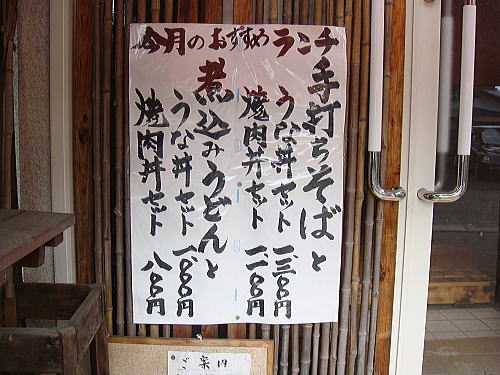 今月のおすすめランチ
手打ちそばと
うな丼セット 一三〇〇円
焼肉丼セット 一一〇〇円
煮込みうどんと
うな丼セット 一〇〇〇円
焼肉丼セット 八〇〇円
ご案内